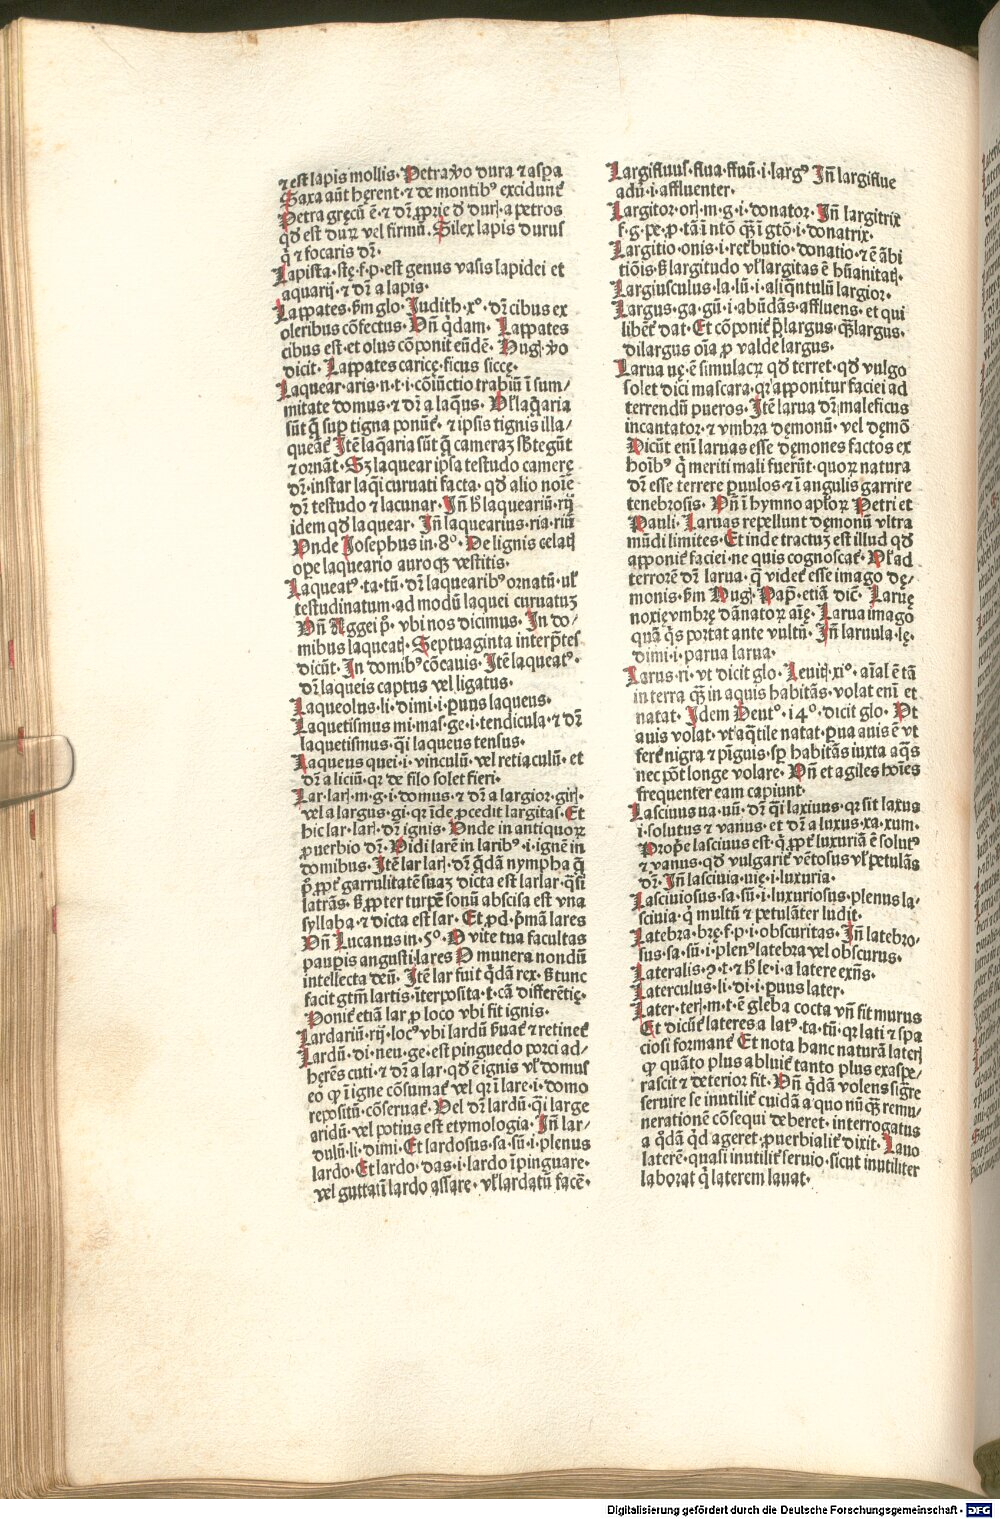 ⁊ est lapis mollis· Petra v̾o dura ⁊ aspa
Saxa aūt hęrent·⁊ de montibꝰ excidunt᷑
Petra gręcū ē·⁊ dr̄ ꝓprie ꝺ durꝭ·a petros
qꝺ est duꝝ vel firmū· Silex lapis durus
q̄ ⁊ focaris dr̄·
Lapista·stę·f·p·est genus vasis lapidei et
aquarij·⁊ dr̄ a lapis·
Lappates·ẜm glo· Judith·xº· dr̄ cibus ex
oleribus cōfectus· Vn̄ q̇dam· Lappates
cibus est·et olus cōponit eūdē· Hugꝭ v̾o
dicit· Lappates caricę·ficus siccę·
Laquear·aris·n·t·i·cōiūctio trabiū ī sum/
mitate domus·⁊ dr̄ a laq̄us· Vl̕ laq̄aria
sūt q̄ suꝑ tigna ponūt᷑· ⁊ ipsis tignis illa/
queāt᷑ Itē laq̄aria sūt q̄ cameraꝫ sb̕tegūt
⁊ ornāt· Sꝫ laquear ipsa testudo camerę
dr̄·instar laq̄i curuati facta· qꝺ alio noīe
dr̄ testudo ⁊ lacunar· Jn̄ h̕ laqueariū·rij
idem qꝺ laquear· Jn̄ laquearius·ria·riū
Vnde Josephus in·8º· De lignis celatꝭ
oꝑe laqueario auroqꝫ vestitis·
Laqueatꝰ·ta·tū·dr̄ laquearibꝰ ornatū·vl̕
testudinatum·ad modū laquei curuatuꝫ
Vn̄ Aggei p̄· vbi nos dicimus· In do/
mibus laqueatꝭ· Septuaginta interp̄tes
dicūt· In domibꝰ cōcauis· Itē laqueatꝰ·
dr̄ laqueis captus vel ligatus·
Laqueolus·li·dimi·i·ꝑuus laqueus·
Laquetismus mi·mas·ge·i·tendicula·⁊ dr̄
laquetismus·q̄i laqueus tensus·
Laqueus quei·i·vinculū·vel retiaculū·et
dr̄ a liciū·qr de filo solet fieri·
Lar·larꝭ·m·g·i·domus·⁊ dr̄ a largior·girꝭ·
vel a largus·gi·qr īde ꝓcedit largitas·Et
hic lar·larꝭ·dr̄ ignis· Vnde in antiquoꝝ
ꝓuerbio dr̄· Vidi larē in laribꝰ·i·ignē in
domibus· Itē lar larꝭ·dr̄ q̄dā nympha q̄
p̄ ꝓpt᷑ garrulitatē suaꝫ dicta est larlar·q̄si
latrās· ẜ ꝓpter turpē sonū abscisa est vna
syllaba·⁊ dicta est lar· Et ꝓd·p̄mā lares
Vn̄ Lucanus in·5º· O vite tua facultas
pauꝑis angusti·lares O munera nondū
intellecta deū· Itē lar fuit q̇dā rex· ẜ tunc
facit gt̄m lartis·īterposita·t·cā differētię·
Ponit᷑ etiā lar ꝓ loco vbi fit ignis·
Lardariū·rij·locꝰ vbi lardū ẜuat᷑ ⁊ retinet᷑
Lardū·di·neu·ge·est pinguedo porci ad/
hęrēs cuti·⁊ dr̄ a lar·qꝺ ē ignis vl̕ domus
eo ꝙ ī igne cōsumat᷑ vel qr ī lare·i·domo
repositū·cōseruat᷑· Vel dr̄ lardū·q̄i large
aridū·vel potius est etymologia· Jn̄ lar/
dulū·li·dimi· Et lardosus·sa·sū·i·plenus
lardo· Et lardo·das·i·lardo īpinguare·
vel guttatī lardo assare· vl̕ lardatū facē·
Largifluus·flua·ffuū·i·largꝰ Jn̄ largiflue
adū·i·affluenter·
Largitor·orꝭ·m·g·i·donator· Jn̄ largitrix
f·g·pe·ꝓ·tā ī ntō qꝫ ī gtō·i·donatrix·
Largitio·onis·i·ret̕butio·donatio·⁊ ē ābi
tiōis·ẜ largitudo vl̕ largitas ē hūanitatꝭ·
Largiusculus·la·lū·i·aliq̄ntulū largior·
Largus·ga·gū·i·abūdās·affluens· et qui
libēt᷑ dat· Et cōponit᷑ p̄largus·qꝫlargus·
dilargus oīa ꝓ valde largus·
Larua uę·ē simulacꝝ qꝺ terret·qꝺ vulgo
solet dici mascara·qr apponitur faciei ad
terrendū pueros· Itē larua dr̄ maleficus
incantator·⁊ vmbra dęmonū·vel dęmō
Dicūt enī laruas esse dęmones factos ex
hoībꝰ q̇ meriti mali fuerūt·quoꝝ natura
dr̄ esse terrere ꝑuulos·⁊ ī angulis garrire
tenebrosis· Vn̄ ī hymno apl̕oꝝ Petri et
Pauli· Laruas repellunt dęmonū vltra
mūdi limites· Et inde tractuꝫ est illud qꝺ
apponit᷑ faciei·ne quis cognoscat᷑· Vl̕ ad
terrorē dr̄ larua·q̄ videt᷑ esse imago dę/
monis·ẜm Hugꝭ· Pap̄·etiā dic̄· Laruę
noxię vmbrę dānatoꝝ aīę· Larua imago
quā q̇s portat ante vultū· Jn̄ laruula·lę·
dimi·i·parua larua·
Larus·ri·vt dicit glo· Leuitꝭ·xiº· aīal ē tā
in terra qꝫ in aquis habitās·volat enī et
natat· Idem Deutº·14º·dicit glo· Vt
auis volat·vt aq̄tile natat·ꝑua auis ē vt
fere nigra ⁊ pīguis·sꝑ habitās iuxta aq̄s
nec pōt longe volare· Vn̄ et agiles hoīes
frequenter eam capiunt·
Lasciuus ua·uū·dr̄ q̄i laxiuus·qr sit laxus
i·solutus ⁊ vanus·et dr̄ a luxus·xa·xum·
Prop̄e lasciuus est·q̇ ꝓpt᷑ luxuriā ē solutꝰ
⁊ vanus·qꝺ vulgarit᷑ vētosus vl̕ petulās
dr̄· Jn̄ lasciuia·uię·i·luxuria·
Lasciuiosus·sa·sū·i·luxuriosus·plenus la·
sciuia·q̇ multū ⁊ petulāter ludit·
Latebra·brę·f·p·i·obscuritas· Jn̄ latebro·
sus·sa·sū·i·plenꝰ latebra vel obscurus·
Lateralis·ꝯ·t·⁊ h̕ le·i·a latere exn̄s·
Laterculus·li·di·i·ꝑuus later·
Later·terꝭ·m·t·ē gleba cocta vn̄ fit murus
Et dicūt᷑ lateres a latꝰ·ta·tū·qr lati ⁊ spa
ciosi formant᷑ Et nota hanc naturā laterꝭ
ꝙ quāto plus abluit᷑ tanto plus exaspe/
rascit ⁊ deterior fit· Vn̄ q̇dā volens sig̅re
seruire se inutilit᷑ cuidā a quo nūqꝫ remu/
nerationē cōsequi deberet·interrogatus
a q̇dā q̇d ageret·ꝓuerbialit᷑ dixit· Lauo
laterē·quasi inutilit᷑ seruio·sicut inutiliter
laborat q̇ laterem lauat·
Digitalisierung gefördert durch die Deutsche Forschungsgemeinschaft - DFG